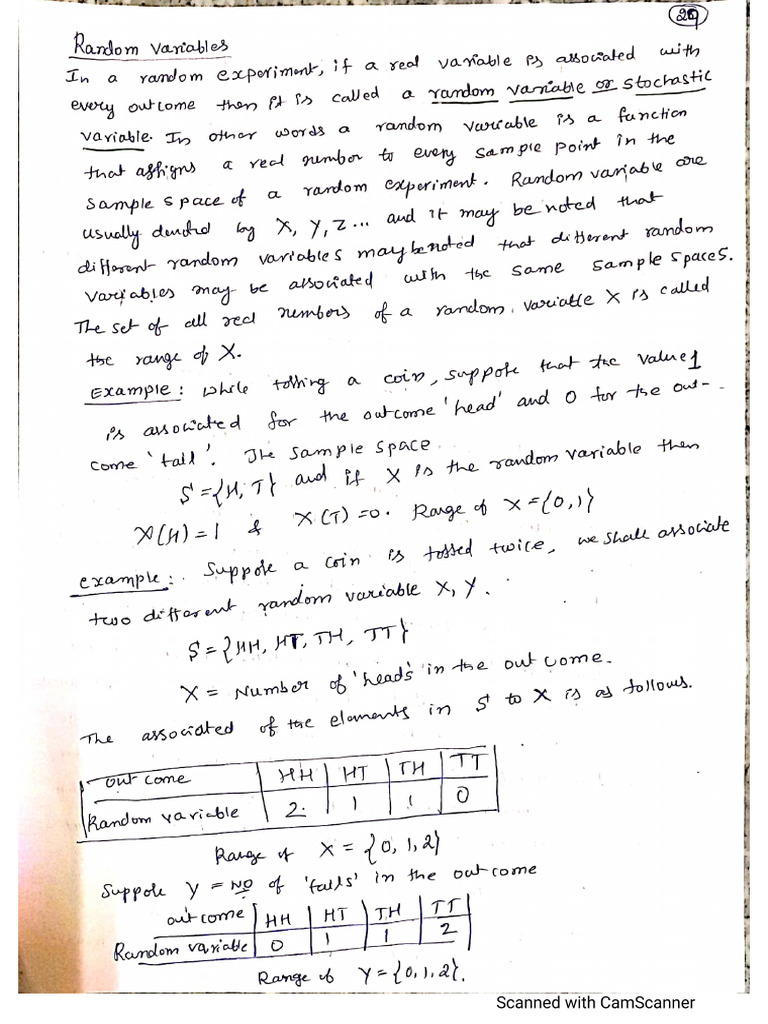 29
Random Variables
In a random experiment, if a real variable is associated with
every outcome then it is called a random variable or stochastic
variable. In other words a random variable is a function
that assigns a real number to every sample point in the
sample space of a random experiment. Random variable are
usually denoted by X, Y, Z ... and it may be noted that
different random variables may be noted that different random
variables may be associated with the same sample spaces.
The set of all real numbers of a random variable X is called
the range of X.
Example: While tossing a coin, suppose that the value 1
is associated for the outcome 'head' and 0 for the out-
come 'tail'. The sample space
S = {H, T} and if X is the random variable then
X(H) = 1 & X(T) = 0. Range of X = {0, 1}
example: Suppose a coin is tossed twice, we shall associate
two different random variable X, Y.
S = {HH, HT, TH, TT}
X = Number of 'heads' in the outcome.
The associated of the elements in S to X is as follows.
out come HH HT TH TT
Random variable 2 1 1 0
Range of X = {0, 1, 2}
Suppose Y = No of 'tails' in the outcome
out come HH HT TH TT
Random variable 0 1 1 2
Range of Y = {0, 1, 2}.
Scanned with CamScanner